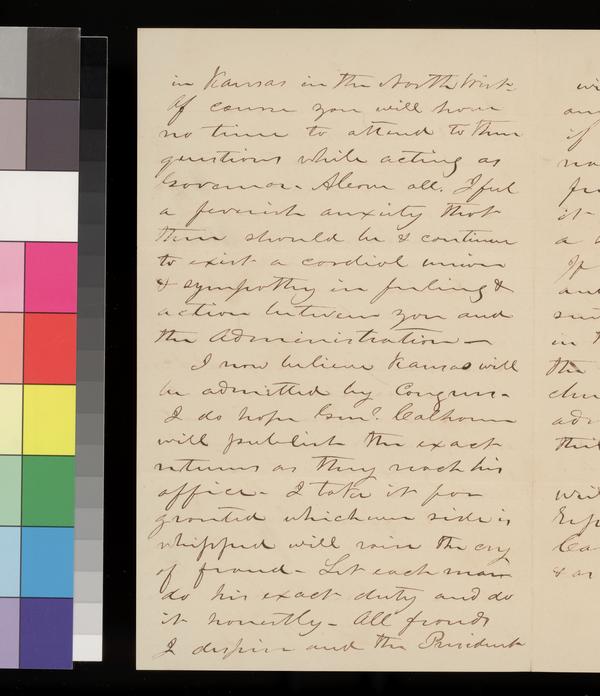 in Kansas in the North West-
Of course you will have
no time to attend to these
questions while acting as
Governor- Above all, I feel
a feverish anxiety that
there should be & continue
to exist a cordial union
& sympathy in feeling &
action between you and
the Administration-
I now believe Kansas will
be admitted by Congress-
I do hope Genl. Calhoun
will publish the exact
returns as they reach his
office- I take it for
granted whichever side is
whipped will raise the cry
of fraud- Let each man
do his exact duty and do
it honestly- All frauds
I despise and the President
an
if
a
in
the
& as